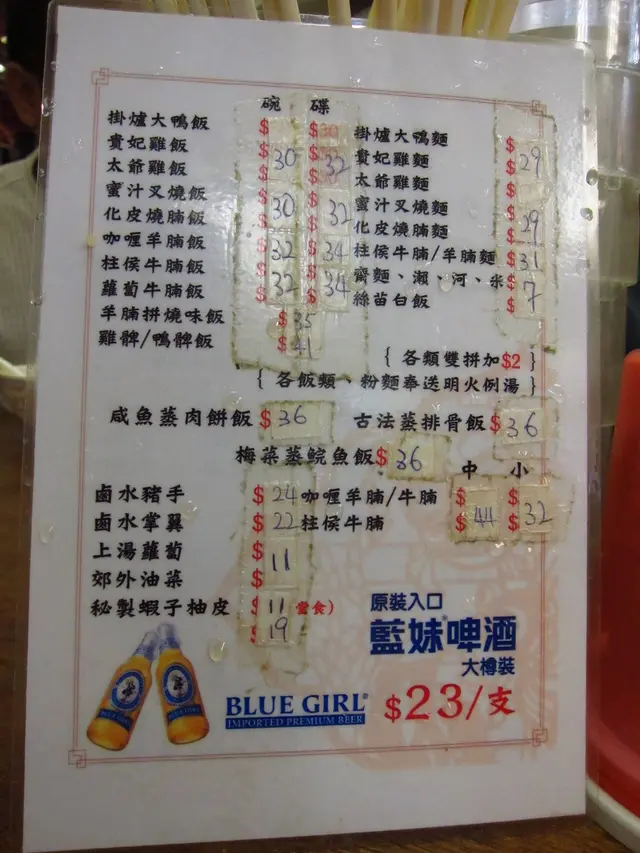 碗 碟
掛爐大鴨飯 $ $30
貴妃雞飯 $30 $32
太爺雞飯 $ $
蜜汁叉燒飯 $30 $32
化皮燒腩飯 $ $
咖喱羊腩飯 $32 $34
柱侯牛腩飯 $ $
蘿蔔牛腩飯 $32 $34
羊腩拼燒味飯 $35
雞髀/鴨髀飯 $41
掛爐大鴨麵 $
貴妃雞麵 $29
太爺雞麵 $
蜜汁叉燒麵 $
化皮燒腩麵 $29
柱侯牛腩/羊腩麵 $31
齋麵、瀨、河、米 $
絲苗白飯 $7
{ 各類雙拼加$2 }
{ 各飯類、粉麵奉送明火例湯 }
咸魚蒸肉餅飯 $36
古法蒸排骨飯 $36
梅菜蒸鯇魚飯 $36
中 小
鹵水豬手 $24
鹵水掌翼 $22
上湯蘿蔔 $11
郊外油菜 $
秘製蝦子柚皮 $11 堂食)
$19
咖喱羊腩/牛腩 $ $
柱侯牛腩 $44 $32
原裝入口
藍妹®啤酒
大樽裝
BLUE GIRL®
IMPORTED PREMIUM BEER
$23/支